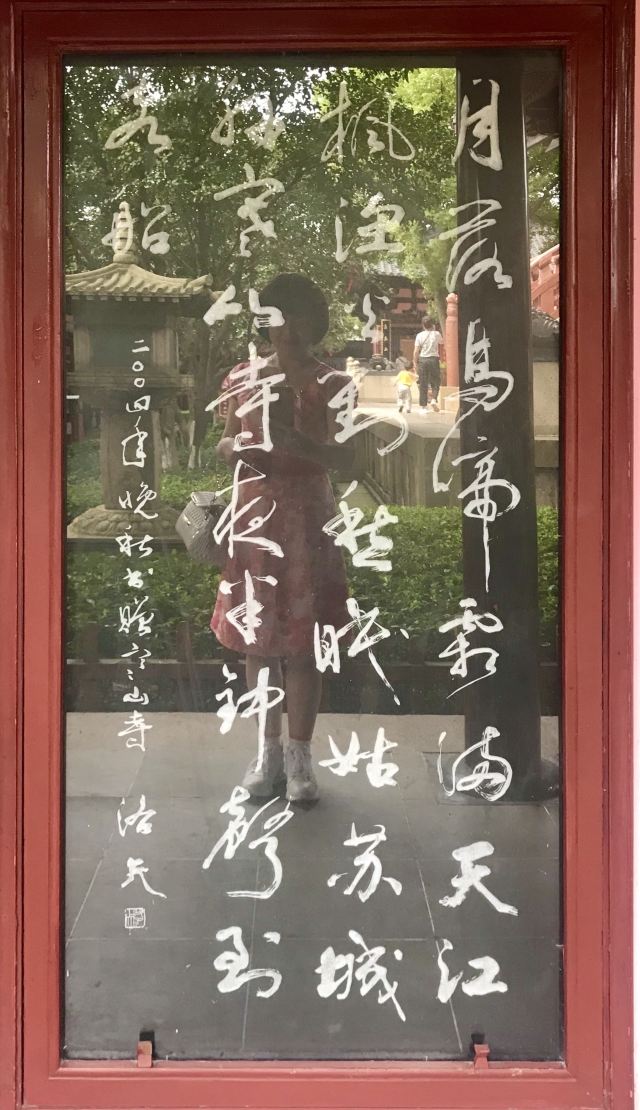 月落烏啼霜满天江
枫渔火对愁眠姑苏城
外寒山寺夜半钟聲到
客船
二〇〇四年晚秋书赠寒山寺
洛夫